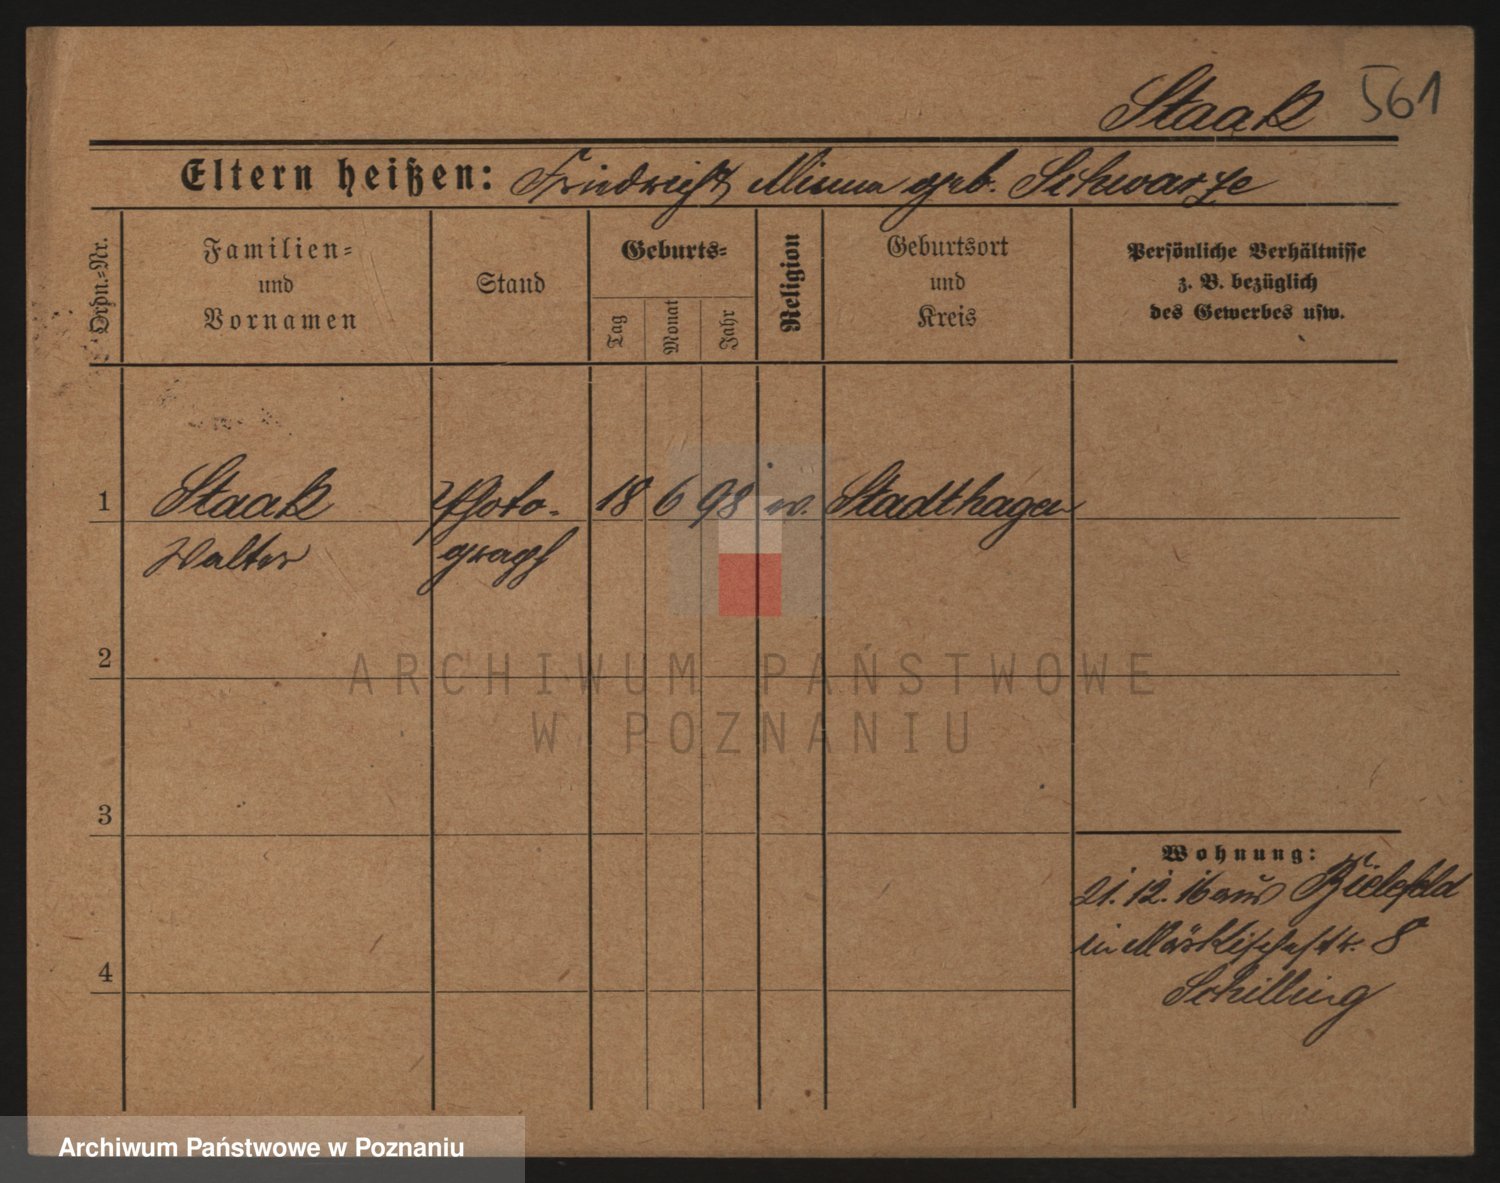 Staak 561
Eltern heißen: Friedrich Minna geb. Schwarze
Ordn.-Nr.
Familien-
und
Vornamen
Stand
Geburts-
Tag
Monat
Jahr
Religion
Geburtsort
und
Kreis
Persönliche Verhältnisse
z. B. bezüglich
des Gewerbes usw.
1 Staak Photo- 18 6 98 Stadthagen
Walter graph
2
3
4
Wohnung:
21. 12. 16 aus Bielefeld
in Märkischestr. 8
Schilling
ARCHIWUM PAŃSTWOWE
W POZNANIU
Archiwum Państwowe w Poznaniu